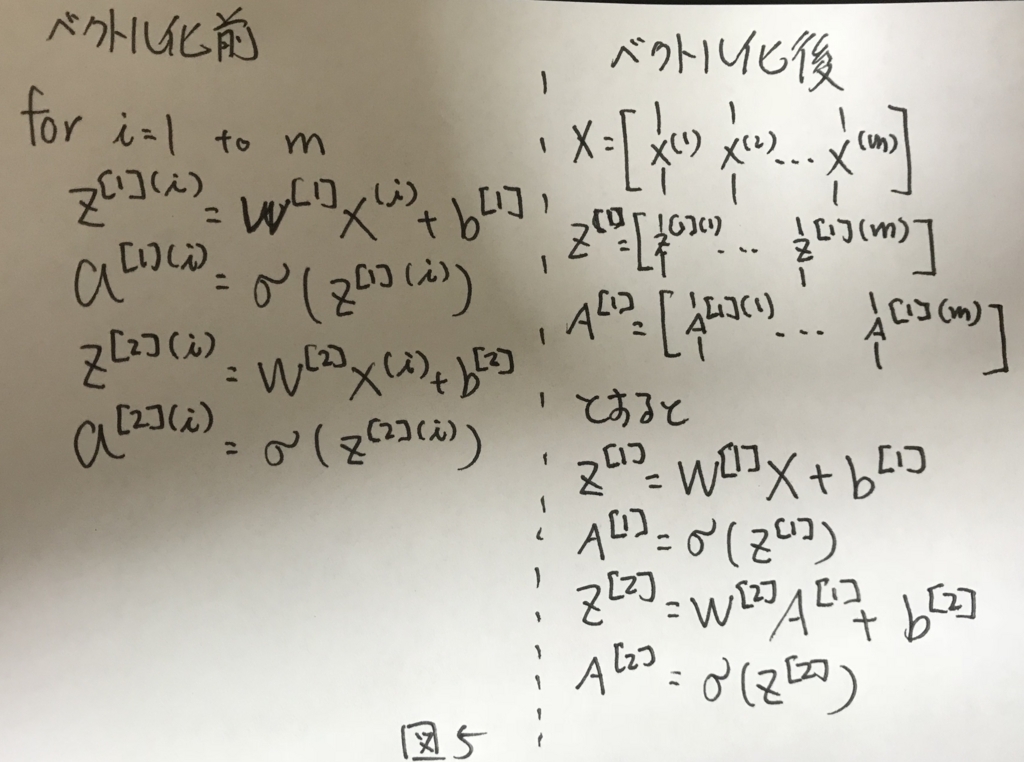 ベクトル化前
for i=1 to m
z^[1](i) = W^[1]x^(i) + b^[1]
a^[1](i) = σ(z^[1](i))
z^[2](i) = W^[2]x^(i) + b^[2]
a^[2](i) = σ(z^[2](i))
ベクトル化後
X = [x^(1) x^(2) ... x^(m)]
Z^[1] = [z^[1](1) ... z^[1](m)]
A^[1] = [A^[1](1) ... A^[1](m)]
とあると
Z^[1] = W^[1]X + b^[1]
A^[1] = σ(Z^[1])
Z^[2] = W^[2]A^[1] + b^[2]
A^[2] = σ(Z^[2])
図5